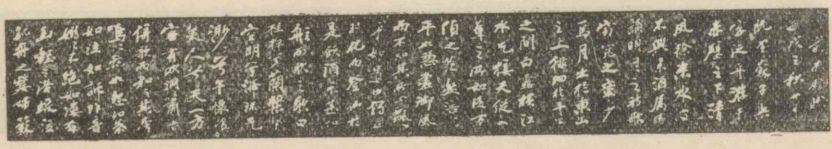 壬戌之秋七月
既望蘇子與
客泛舟遊於
赤壁之下清
風徐來水波
不興舉酒屬客
誦明月之詩歌
窈窕之章少
焉月出於東山
之上徘徊於斗牛
之間白露橫江
水光接天縱一
葦之所如凌萬
頃之茫然浩浩
乎如憑虛御風
而不知其所止飄
飄乎如遺世獨
立羽化而登仙於
是飲酒樂甚扣
舷而歌之歌曰
桂棹兮蘭槳擊
空明兮泝流光
渺渺兮予懷望
美人兮天一方
客有吹洞簫者
倚歌而和之其聲
嗚嗚然如怨如慕
如泣如訴餘音
嫋嫋不絕如縷舞
幽壑之潛蛟泣
孤舟之嫠婦蘇